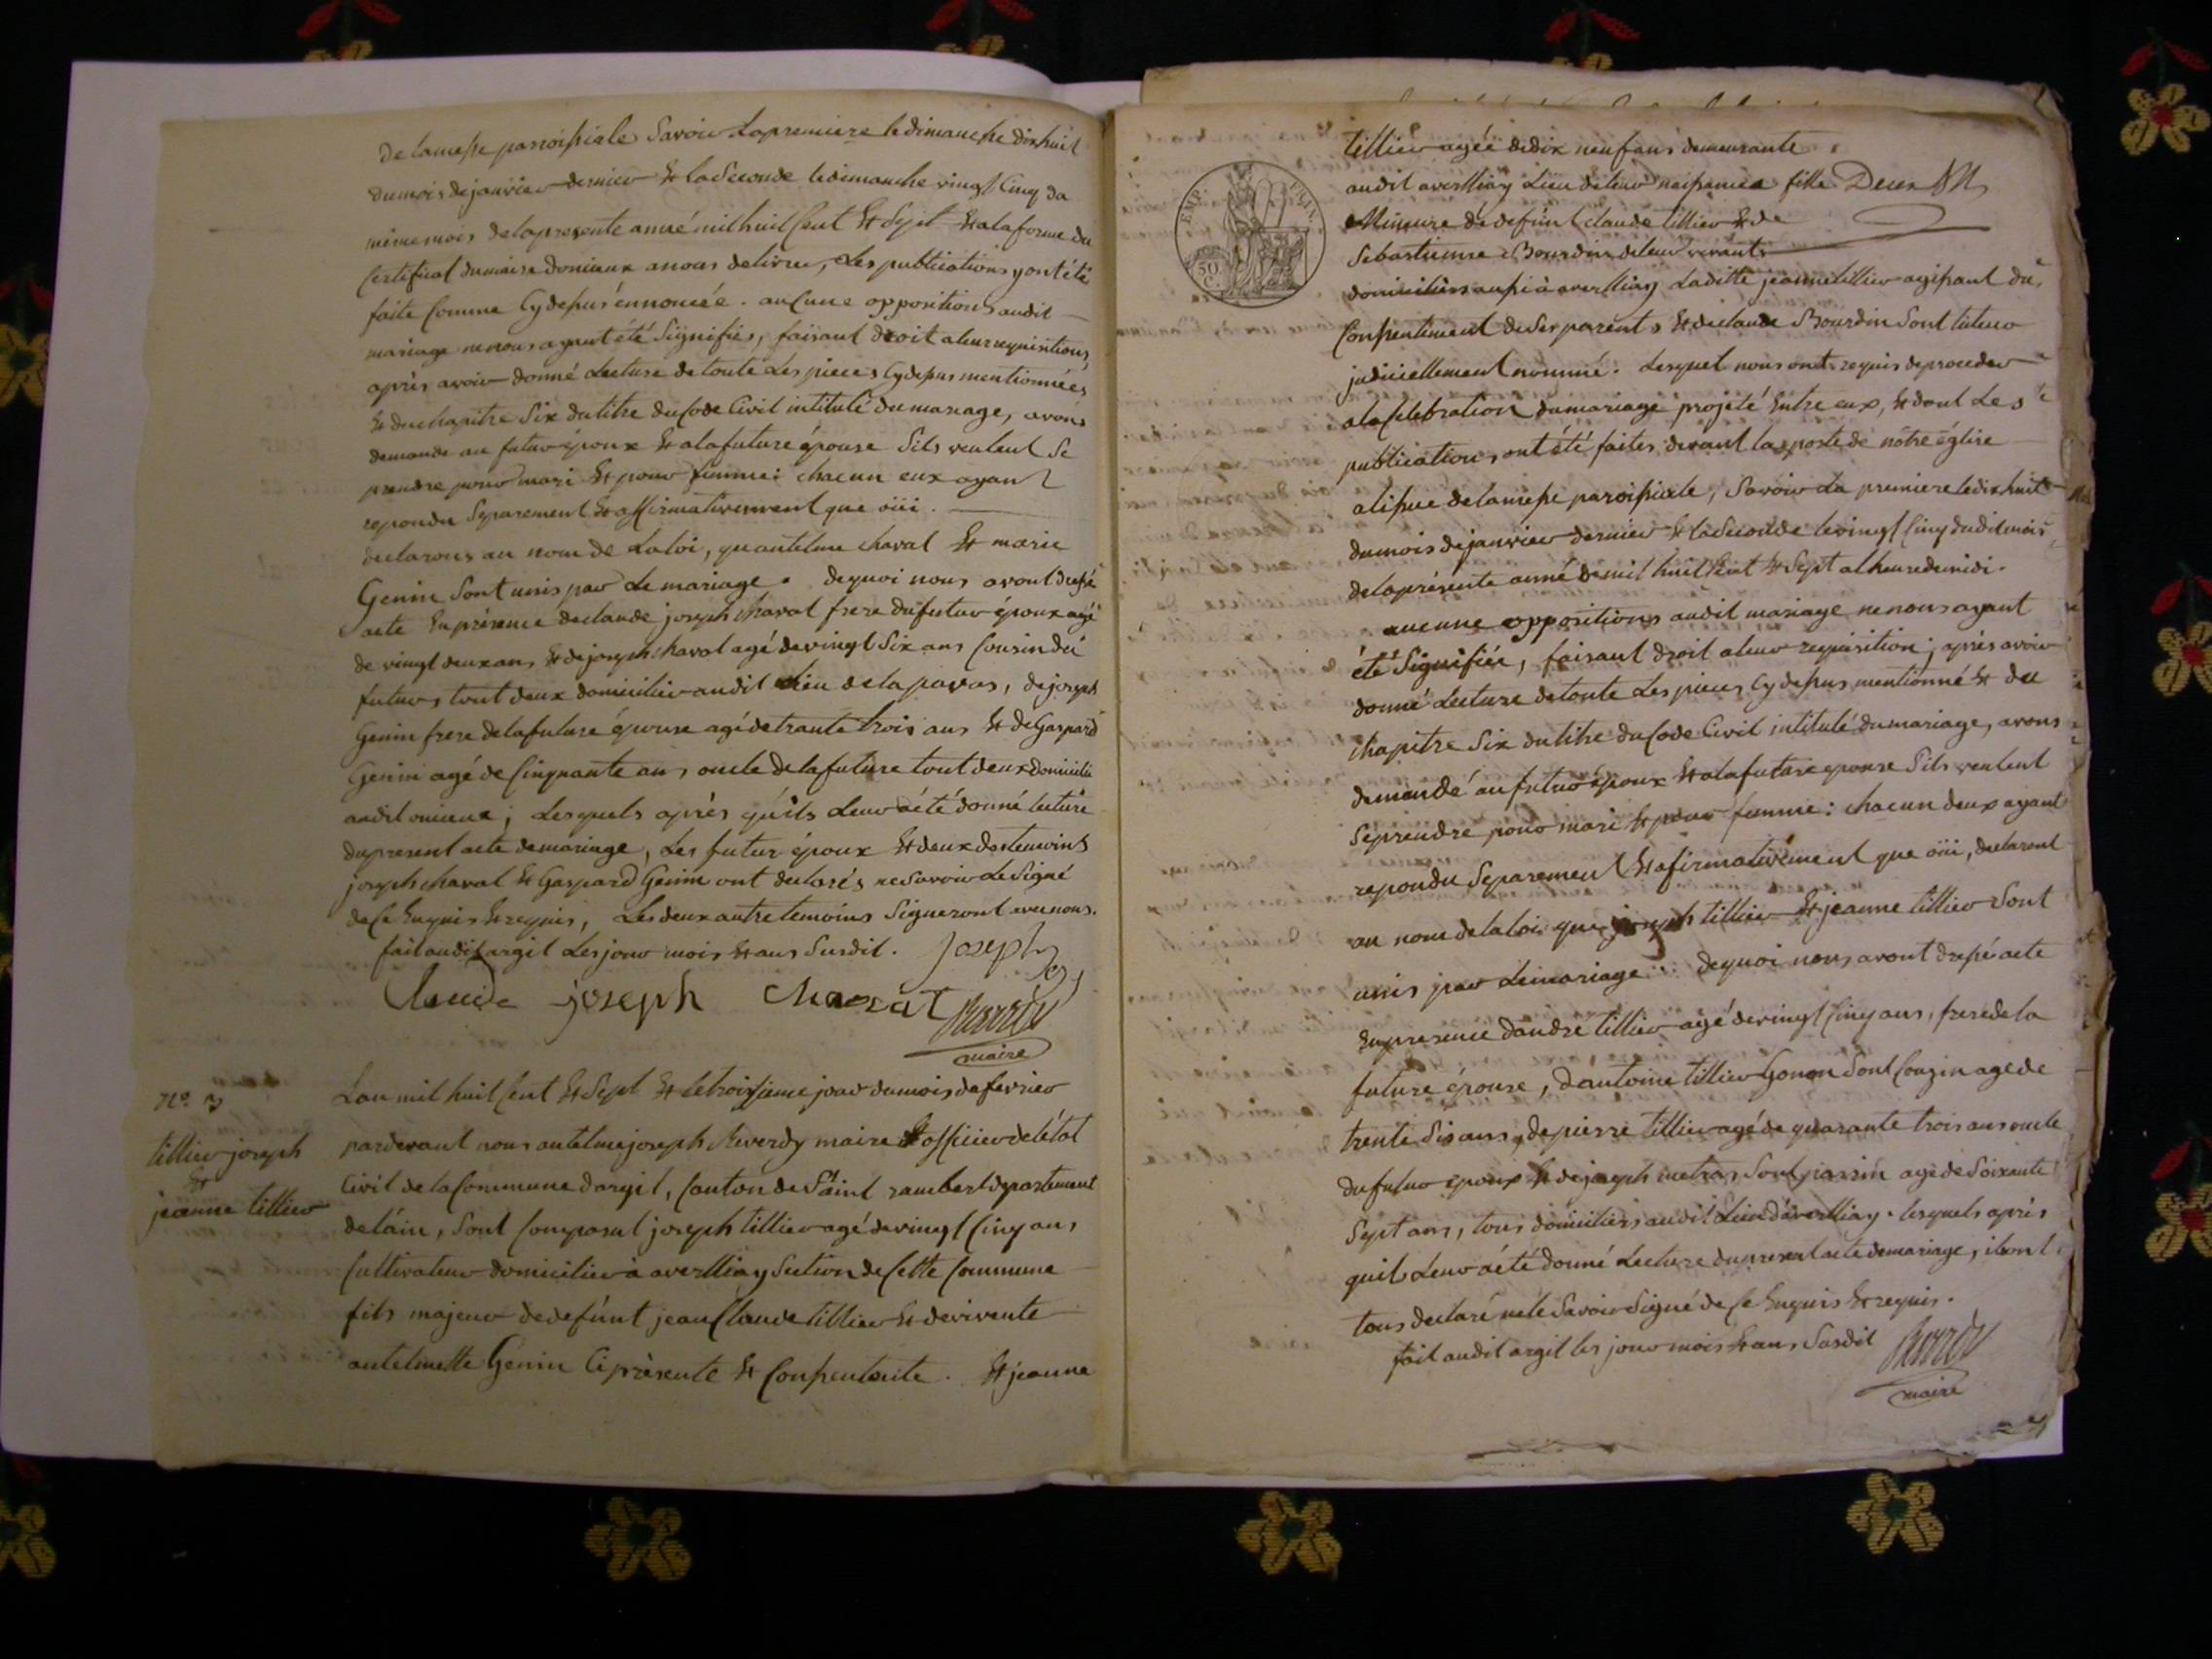 De la messe parroissiale Savoir La premiere le dimanche dixhuit
du mois de janvier dernier Et La Seconde le dimanche vingt Cinq du
même mois de la presente année mil huit Cent Et Sept Et a la forme du
Certificat du maire donieux a nous delivrer, Les publications y ont été
faite Comme Cy dessus énnoncéé. aucune oppositions audit
mariage ne nous ayant été Signifiés, faisant droit a leur requisitions,
après avoir donné Lecture de toute Les pieces Cy dessus mentionnéés
Et du chapitre Six du titre du Code Civil intitulé du mariage, avons
demande au futur époux Et a la future épouse Sils veulent Se
prendre pour mari Et pour femme: chacun eux ayant
repondu Separement Et affirmativement que öüi.
declarons au nom de La loi, quantelme chaval Et marie
Genin Sont unis par Le mariage. de quoi nous avont dressé
acte En présence de claude joseph chaval frere du futur époux agé
de vingt deux ans Et de joseph chaval agé de vingt Six ans Cousin du
futur, tout deux domicilier audit Lieu de la pavas, de joseph
Genin frere de la future épouse agé de trante trois ans Et de Gaspard
Genin agé de Cinquante ans oncle de la future tout deux domicilié
audit onieux; Lesquels après quils Leur a été donné lecture
du present acte de mariage, Les futur époux Et deux des temoins
joseph chaval Et Gaspard Genin ont declarés ne Savoir Le Signé
de Ce Enquis Et requis, Les deux autre temoins Signeront avec nous.
fait audit argit Les jour mois Et ans Susdit. Joseph
Claude joseph Chaval Reverdy
maire
N° 3
tillier joseph
Et
jeanne tillier
Lan mil huit Cent Et Sept Et le troisieme jour du mois de fevrier
pardevant nous antelme joseph Reverdy maire Et officier de létat
Civil de la Commune dargit, Canton de Saint rambert departement
de láin, Sont Comparut joseph tillier agé de vingt Cinq ans
Cultivateur domicilier à averlliay Section de Cette Commune
fils majeur de defúnt jean Claude tillier Et de vivente
antelmette Génin Ci présente Et Consentente. Et jeanne
EMP. FRAN.
50
C.
tillier agéé de dix neuf ans demeurante
audit averlliay Lieu de leur naissance fille Deux
Mineure de defúnt claude tillier Et de
Sebastienne Bourdin de leur vivants
domiciliers aussi à averlliay Laditte jeanne tillier agissant du
Consentement de Ses parents Et de claude Bourdin Sont tuteur
judiciellement nommé. Lesquel nous ont requis de proceder
a la Celebration du mariage projeté Entre eux, Et dont Les
publications ont été faites devant la porte de nôtre église
a lissue de la messe paroissiale, Savoir La premiere le dix huit
du mois de janvier dernier Et la Seconde le vingt Cinq dudit mois
de la présente anné de mil huit Cent Et Sept a lheure de midi.
aucune oppositions audit mariage ne nous ayant
été Signifiée, faisant droit a leur requisition; après avoir
donné Lecture de toute Les pieces Cy dessus mentionné Et du
chapitre Six du titre du Code Civil intitulé du mariage, avons
demandé au futur époux Et a la future epouse Sils veulent
Se prendre pour mari Et pour femme: chacun deux ayant
repondu Separement Et afirmativement que öüi, declaront
au nom de la loi que joseph tillier Et jeanne tillier Sont
unis par Le mariage. de quoi nous avont dressé acte
En presence dandre tillier agé de vingt Cinq ans, frere de la
future épouse, dantoine tillier Gonon Sont Cougin age de
trente Six ans, de pierre tillier agé de quarante trois ans oncle
du futur epoux Et de joseph metras Sont parrin agé de Soixante
Sept ans, tous domiciliers audit Lieu daverlliay. lesquels après
quils Leur a été donné Lecture du present acte de mariage, ils ont
tous declaré ne le Savoir Signé de Ce Enquis Et requis.
fait audit argit les jour mois Et ans Susdit Reverdy
maire